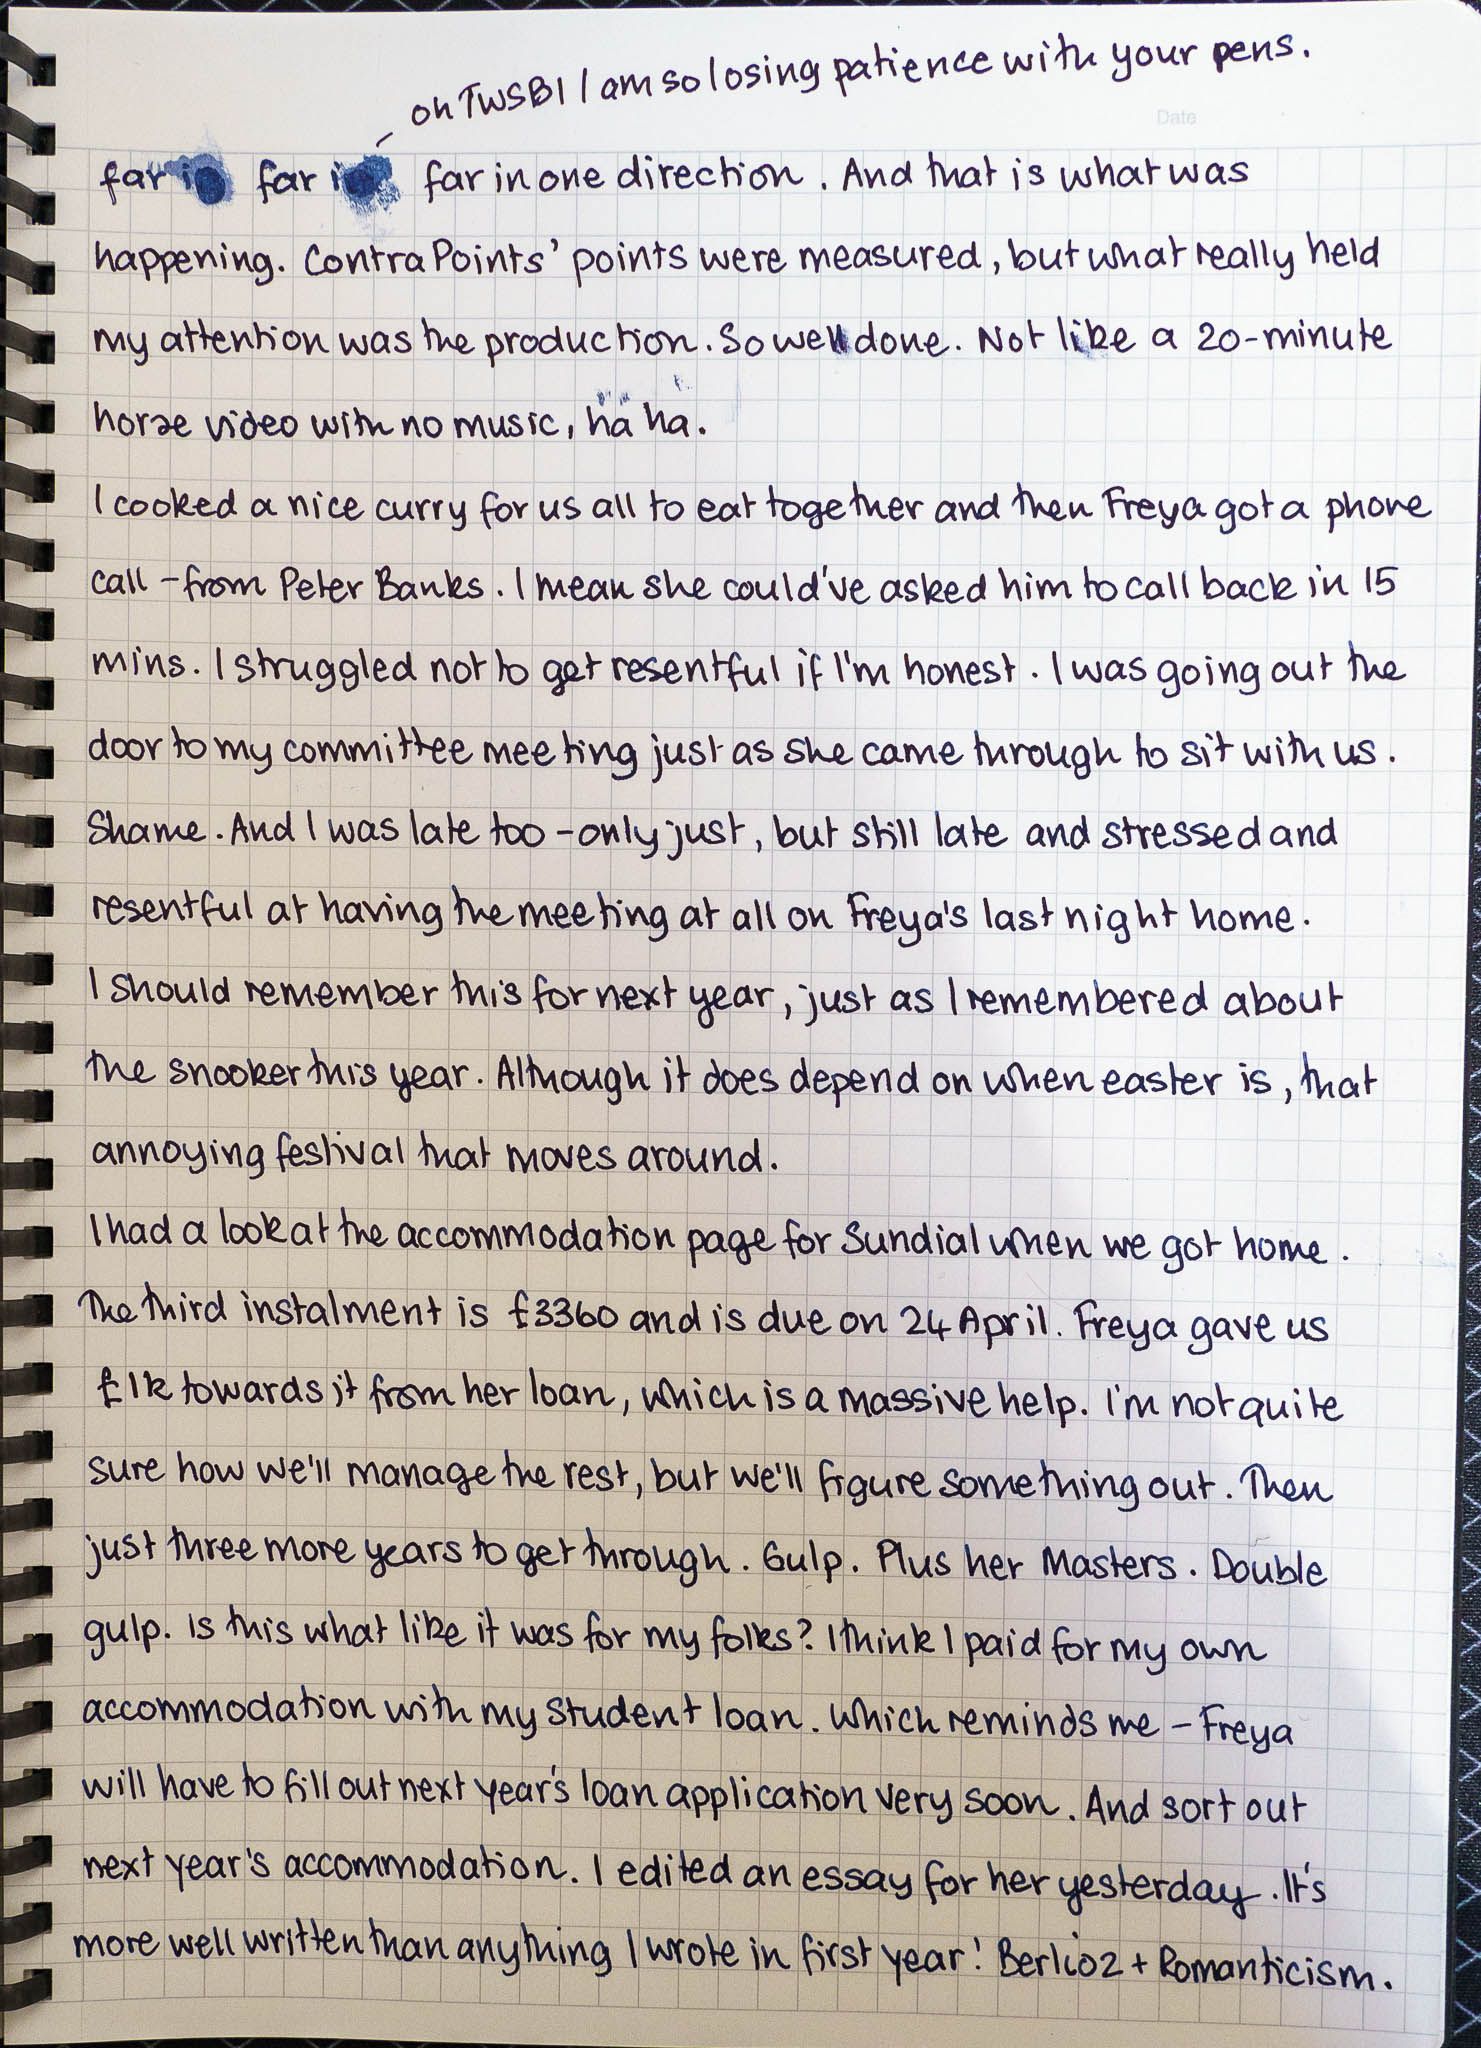 oh TWSBI I am so losing patience with your pens.
Date
far i far i far in one direction. And that is what was
happening. ContraPoints' points were measured, but what really held
my attention was the production. So well done. Not like a 20-minute
horse video with no music, ha ha.
I cooked a nice curry for us all to eat together and then Freya got a phone
call - from Peter Banks. I mean she could've asked him to call back in 15
mins. I struggled not to get resentful if I'm honest. I was going out the
door to my committee meeting just as she came through to sit with us.
Shame. And I was late too - only just, but still late and stressed and
resentful at having the meeting at all on Freya's last night home.
I should remember this for next year, just as I remembered about
the snooker this year. Although it does depend on when easter is, that
annoying festival that moves around.
I had a look at the accommodation page for Sundial when we got home.
The third instalment is £3360 and is due on 24 April. Freya gave us
£1k towards it from her loan, which is a massive help. I'm not quite
sure how we'll manage the rest, but we'll figure something out. Then
just three more years to get through. Gulp. Plus her Masters. Double
gulp. Is this what like it was for my folks? I think I paid for my own
accommodation with my student loan. Which reminds me - Freya
will have to fill out next year's loan application very soon. And sort out
next year's accommodation. I edited an essay for her yesterday. It's
more well written than anything I wrote in first year! Berlioz + Romanticism.